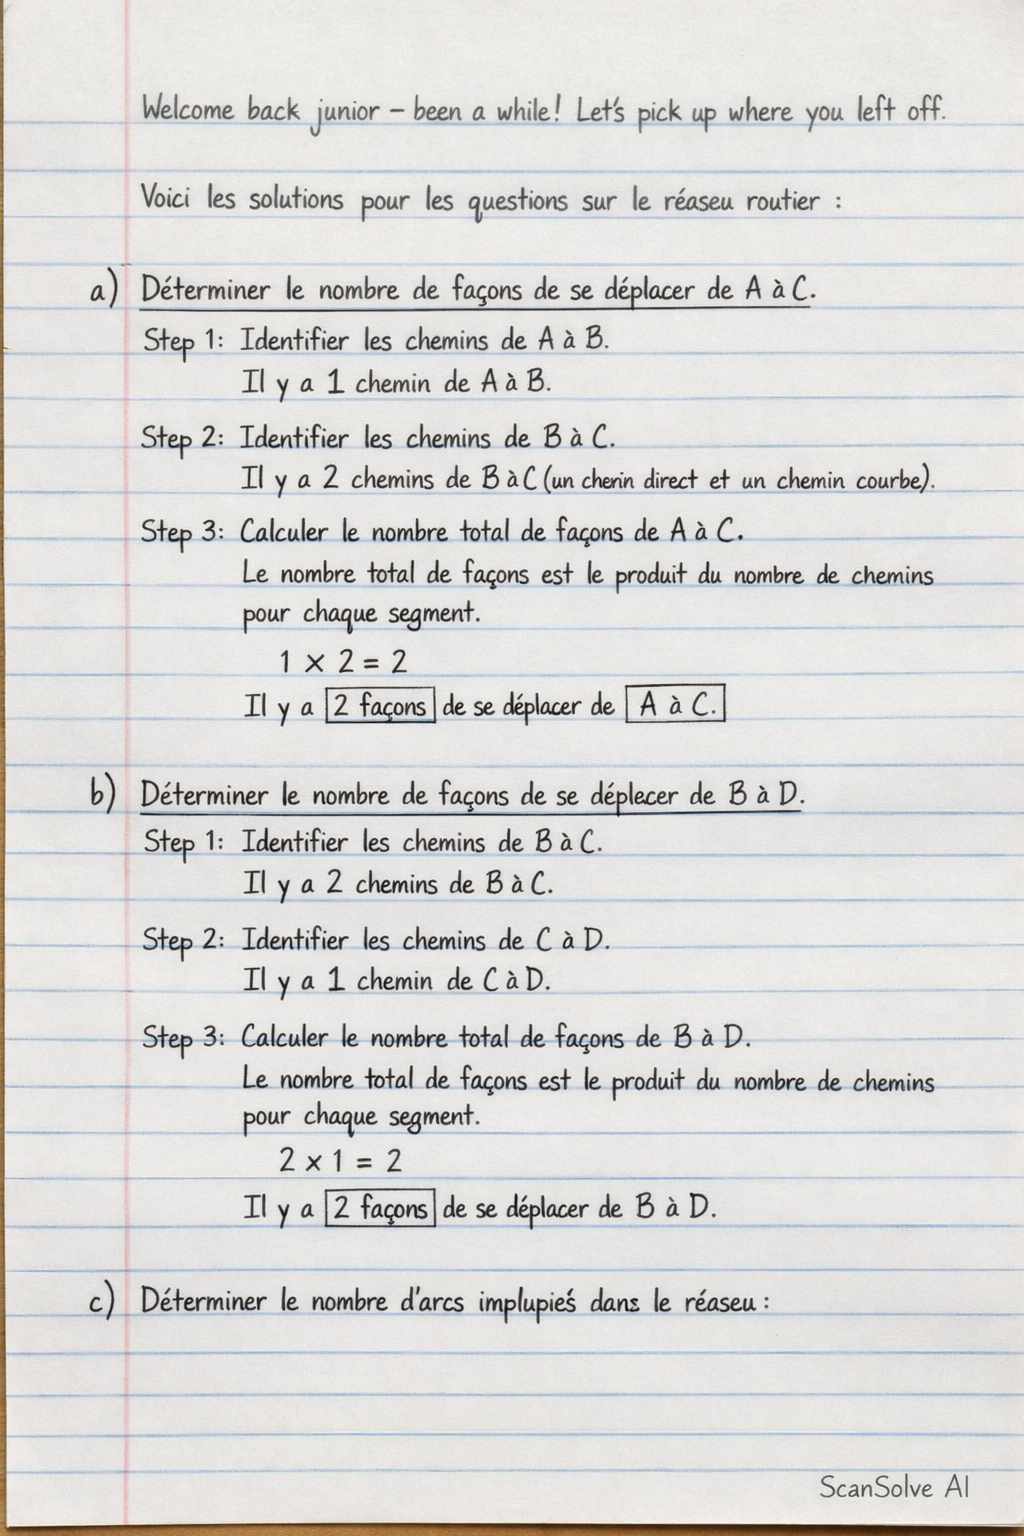 Welcome back junior – been a while! Let's pick up where you left off.
Voici les solutions pour les questions sur le réaseu routier :
a) Déterminer le nombre de façons de se déplacer de A à C.
Step 1: Identifier les chemins de A à B.
Il y a 1 chemin de A à B.
Step 2: Identifier les chemins de B à C.
Il y a 2 chemins de B à C (un cherin direct et un chemin courbe).
Step 3: Calculer le nombre total de façons de A à C.
Le nombre total de façons est le produit du nombre de chemins
pour chaque segment.
1 × 2 = 2
Il y a 2 façons de se déplacer de A à C.
b) Déterminer le nombre de façons de se déplecer de B à D.
Step 1: Identifier les chemins de B à C.
Il y a 2 chemins de B à C.
Step 2: Identifier les chemins de C à D.
Il y a 1 chemin de C à D.
Step 3: Calculer le nombre total de façons de B à D.
Le nombre total de façons est le produit du nombre de chemins
pour chaque segment.
2 × 1 = 2
Il y a 2 façons de se déplacer de B à D.
c) Déterminer le nombre d'arcs implupiés dans le réaseu :
ScanSolve AI